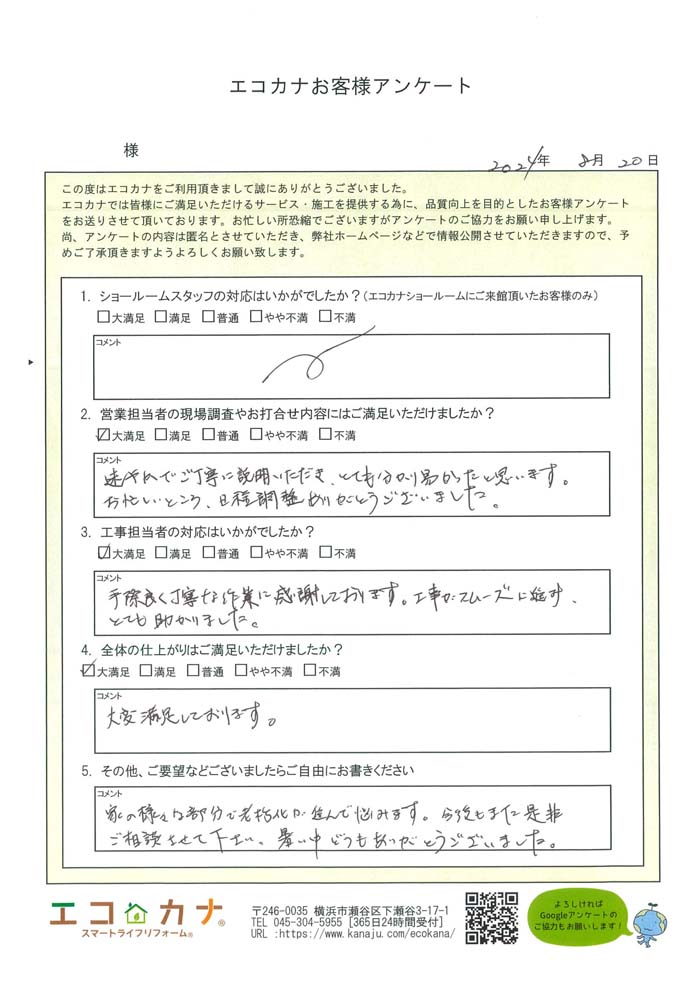 エコカナお客様アンケート
様
2024年 8月 20日
この度はエコカナをご利用頂きまして誠にありがとうございました。
エコカナでは皆様にご満足いただけるサービス・施工を提供する為に、品質向上を目的としたお客様アンケート
をお送りさせて頂いております。お忙しい所恐縮でございますがアンケートのご協力をお願い申し上げます。
尚、アンケートの内容は匿名とさせていただき、弊社ホームページなどで情報公開させていただきますので、予
めご了承頂きますようよろしくお願い致します。
1. ショールームスタッフの対応はいかがでしたか?(エコカナショールームにご来館頂いたお客様のみ)
□大満足 □満足 □普通 □やや不満 □不満
コメント
2. 営業担当者の現場調査やお打合せ内容にはご満足いただけましたか?
☑大満足 □満足 □普通 □やや不満 □不満
コメント
でご丁寧に説明いただき、とても分かり易かったと思います。
お忙しいところ、日程調整ありがとうございました。
3. 工事担当者の対応はいかがでしたか?
☑大満足 □満足 □普通 □やや不満 □不満
コメント
手際良く丁寧な作業に感謝しております。工事がスムーズに進み、
とても助かりました。
4. 全体の仕上がりはご満足いただけましたか?
☑大満足 □満足 □普通 □やや不満 □不満
コメント
大変満足しております。
5. その他、ご要望などございましたらご自由にお書きください
コメント
家の様々な部分で老朽化が進んで悩みます。今後もまた是非
ご相談させて下さい。暑い中どうもありがとうございました。
エコカナ®
スマートライフリフォーム®
〒246-0035 横浜市瀬谷区下瀬谷3-17-1
TEL 045-304-5955 [365日24時間受付]
URL :https://www.kanaju.com/ecokana/
よろしければ
Googleアンケートの
ご協力もお願いします!